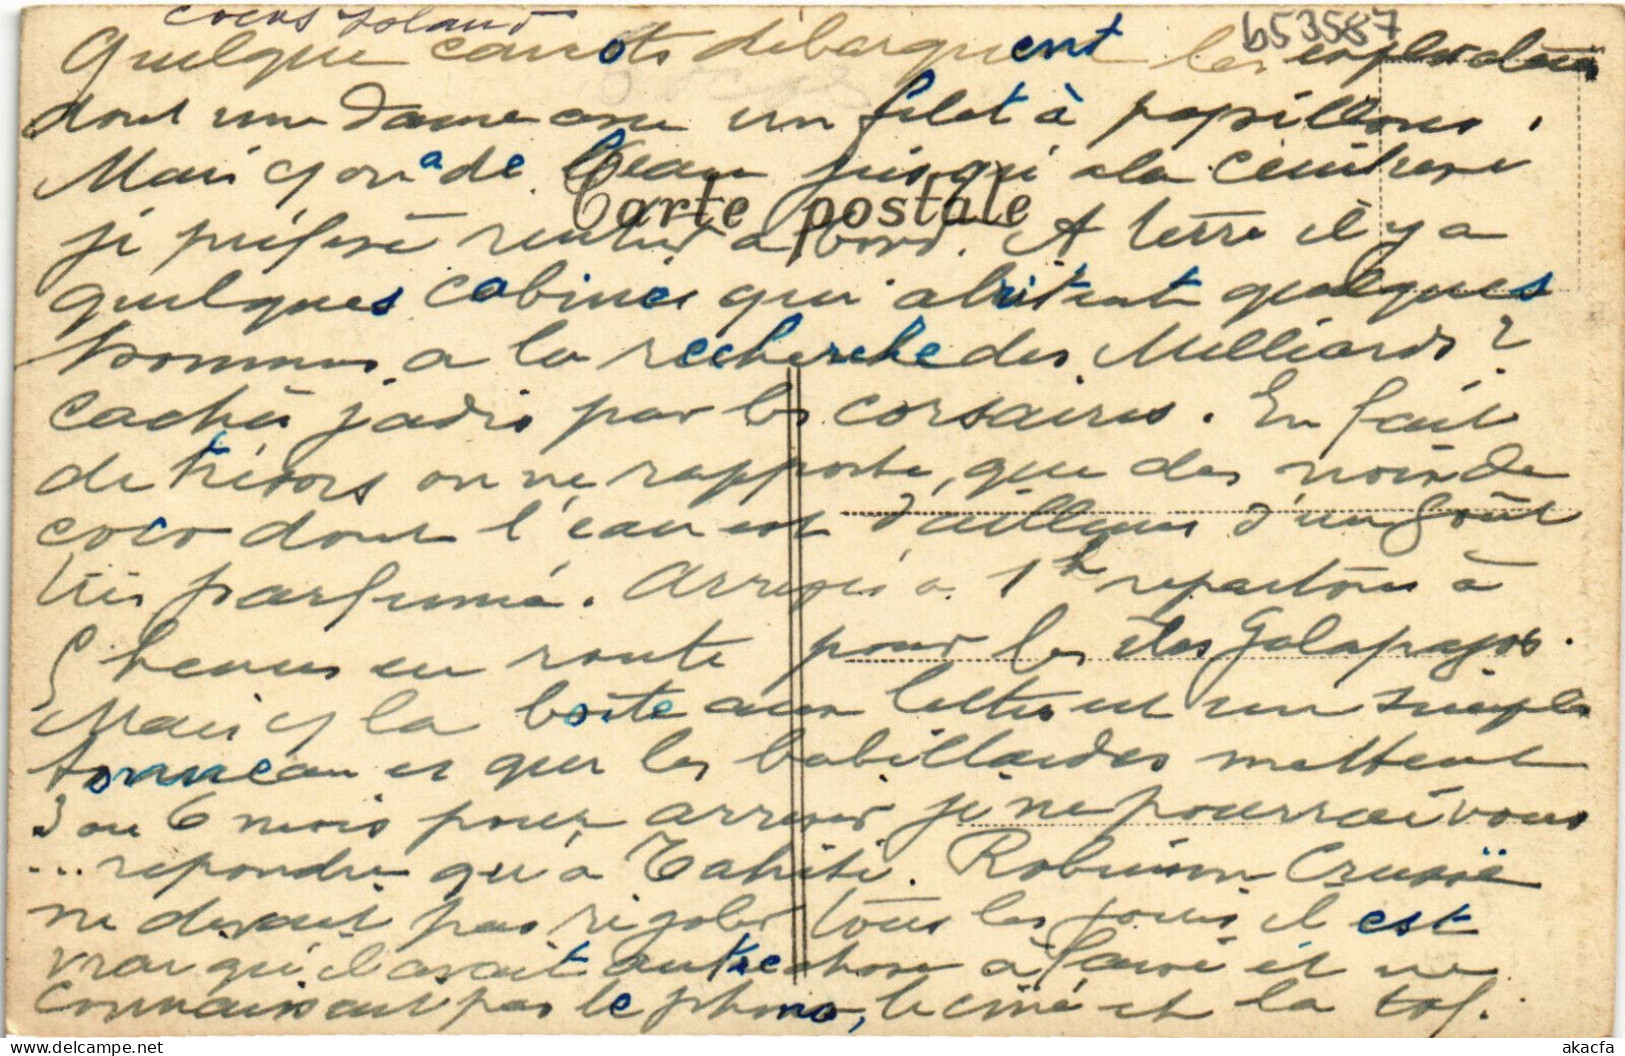 Cocos Island
b53587
Quelque canots débarquent les explorateurs
dont une dame avec un filet à papillons.
Mais y on a de l'eau jusqu'a la ceinture
je préfère rentrer a bord. A terre il y a
quelques cabines qui abritent quelques
hommes a la recherche des Milliards ?
cachés jadis par les corsaires. En fait
de trésors on ne rapporte, que des noix de
coco dont l'eau est d'ailleurs d'un goût
très parfumé. Arrivés a 1h repartons à
5 heures en route pour les îles Galapagos.
Mais y la boîte aux lettres est un simple
tonneau et que les babillardes mettent
3 ou 6 mois pour arriver je ne pourrai vous
... repondre qu'a Tahiti. Robinson Crusoë
ne devait pas rigoler tous les jours il est
vrai qu'il avait autre chose à faire et ne
connaissait pas le phono, le ciné et la tsf.
Carte postale
akacfa